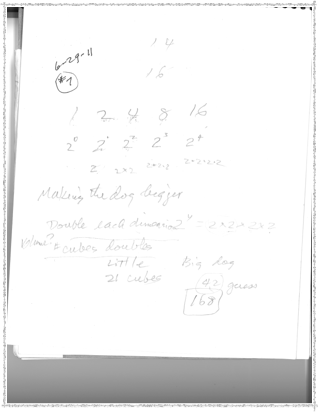 14
6-29-11
#7
16
1 2 4 8 16
2⁰ 2¹ 2² 2³ 2⁴
2 2×2 2×2×2 2×2×2×2
Making the dog bigger
Double each dimension 2⁴ = 2×2×2×2
Volume? = cubes doubles
Little Big dog
21 cubes 142 guess
168